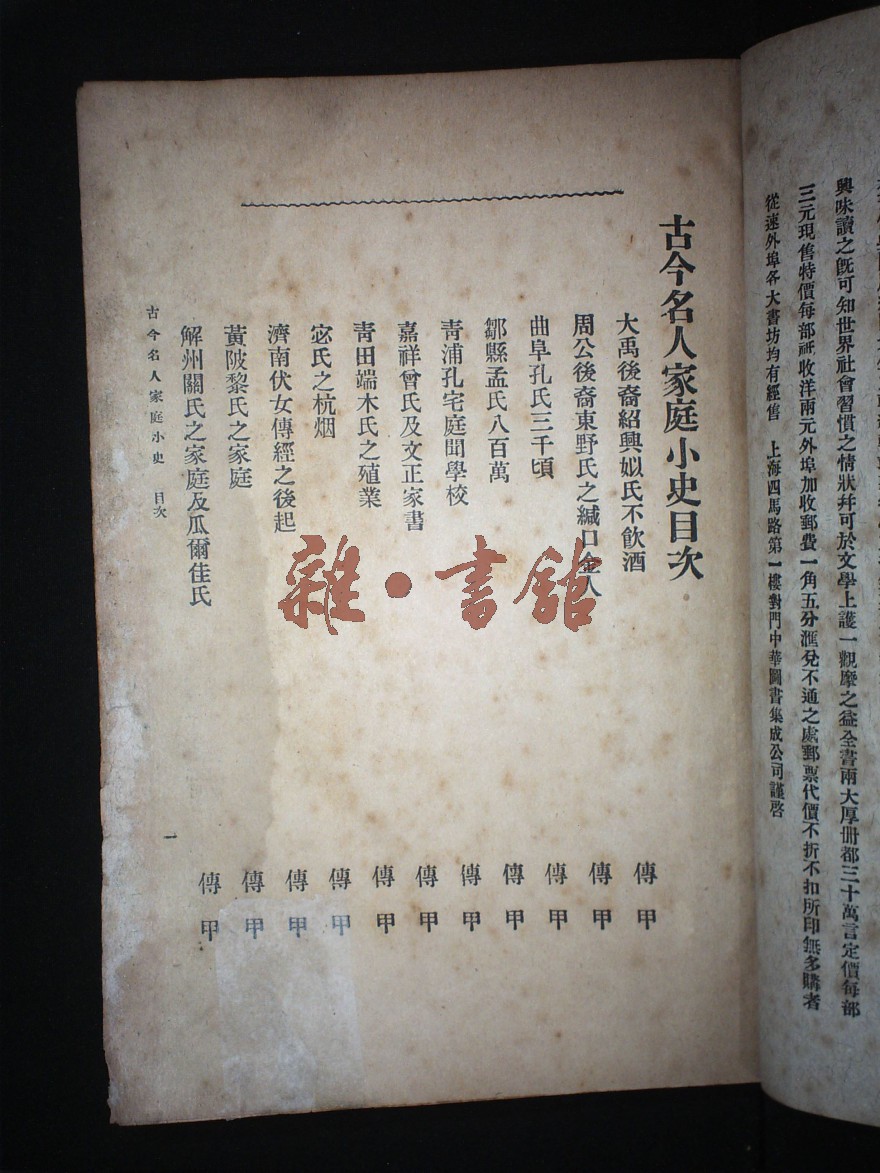 興味讀之旣可知世界社會習慣之情狀幷可於文學上護一觀摩之益全書兩大厚册都三十萬言定價每部
三元現售特價每部祇收洋兩元外埠加收郵費一角五分滙兌不通之處郵票代價不折不扣所印無多購者
從速外埠各大書坊均有經售　上海四馬路第一樓對門中華圖書集成公司謹啓
古今名人家庭小史目次
大禹後裔紹興姒氏不飮酒　傳甲
周公後裔東野氏之緘口金人　傳甲
曲阜孔氏三千頃　傳甲
鄒縣孟氏八百萬　傳甲
靑浦孔宅庭聞學校　傳甲
嘉祥曾氏及文正家書　傳甲
靑田端木氏之殖業　傳甲
宓氏之杭烟　傳甲
濟南伏女傳經之後起　傳甲
黃陂黎氏之家庭　傳甲
解州關氏之家庭及瓜爾佳氏　傳甲
古今名人家庭小史　目次　一
雜·書舘